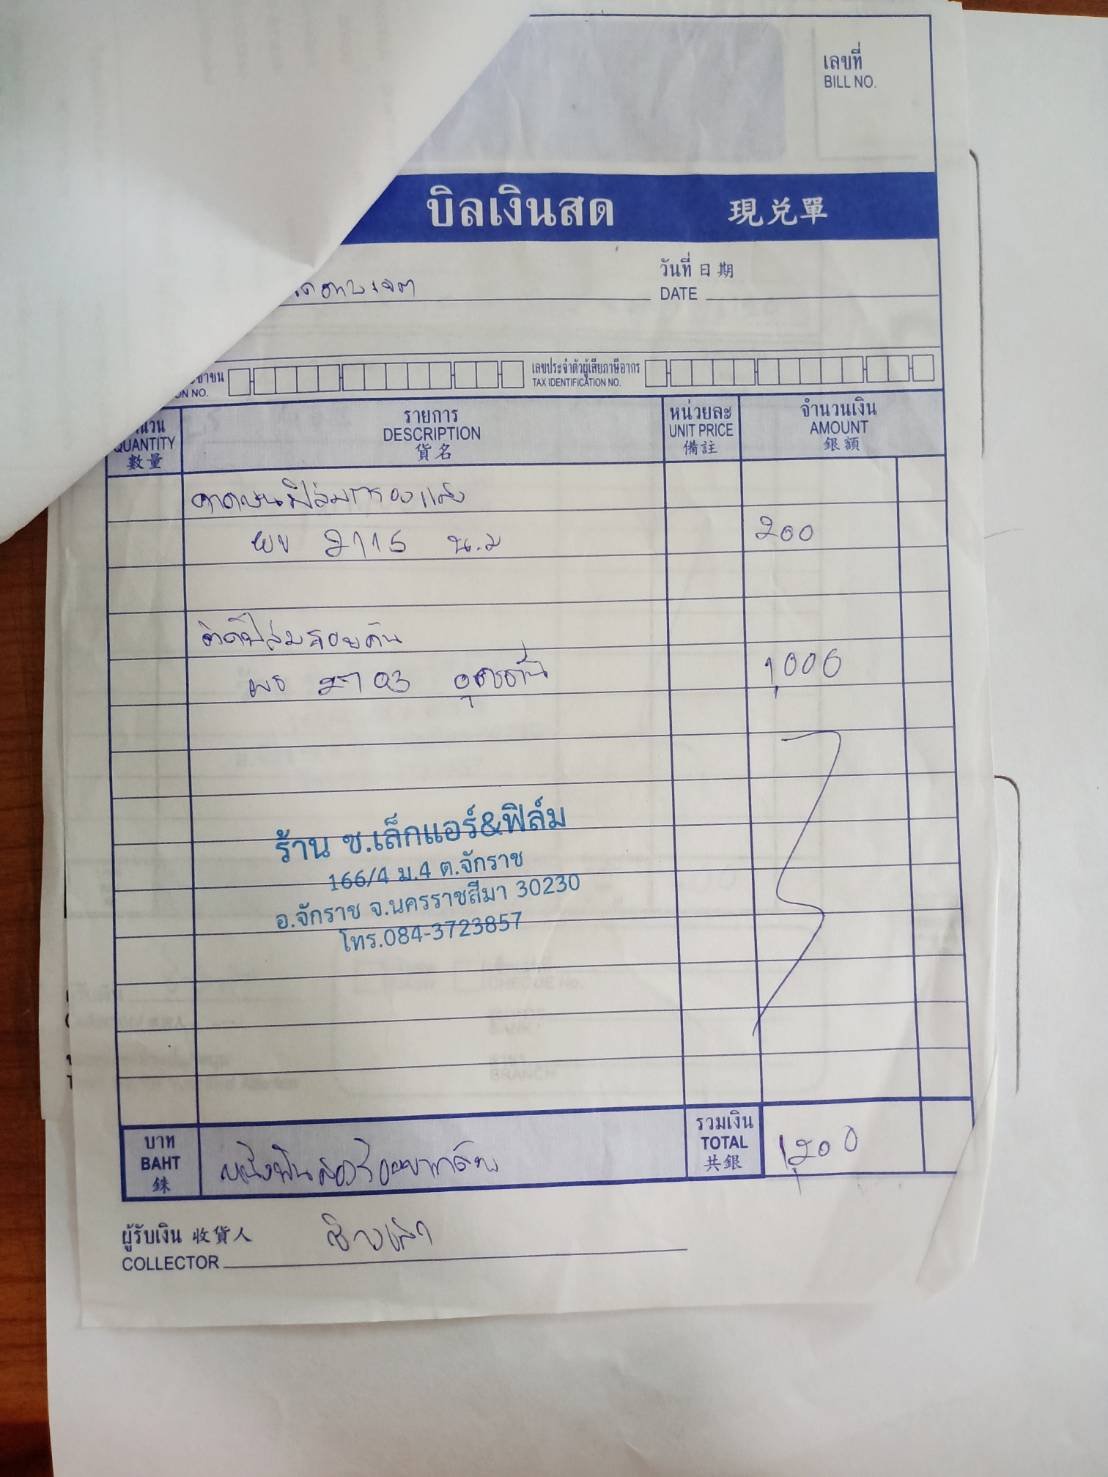 เลขที่
BILL NO.
บิลเงินสด 現兑單
วันที่ 日期
DATE
ขาชน
ON NO.
เลขประจำตัวผู้เสียภาษีอากร
TAX IDENTIFICATION NO.
QUANTITY
數量
รายการ
DESCRIPTION
貨名
หน่วยละ
UNIT PRICE
備註
จำนวนเงิน
AMOUNT
銀額
ฟิล์มกรองแสง
2115 น.ม 200
ติดฟิล์มรอบคัน
1,000
ร้าน ช.เล็กแอร์&ฟิล์ม
166/4 ม.4 ต.จักราช
อ.จักราช จ.นครราชสีมา 30230
โทร.084-3723857
บาท
BAHT
銖
หนึ่งพันสองร้อยบาทถ้วน
รวมเงิน
TOTAL
共銀
1,200
ผู้รับเงิน 收貨人
COLLECTOR